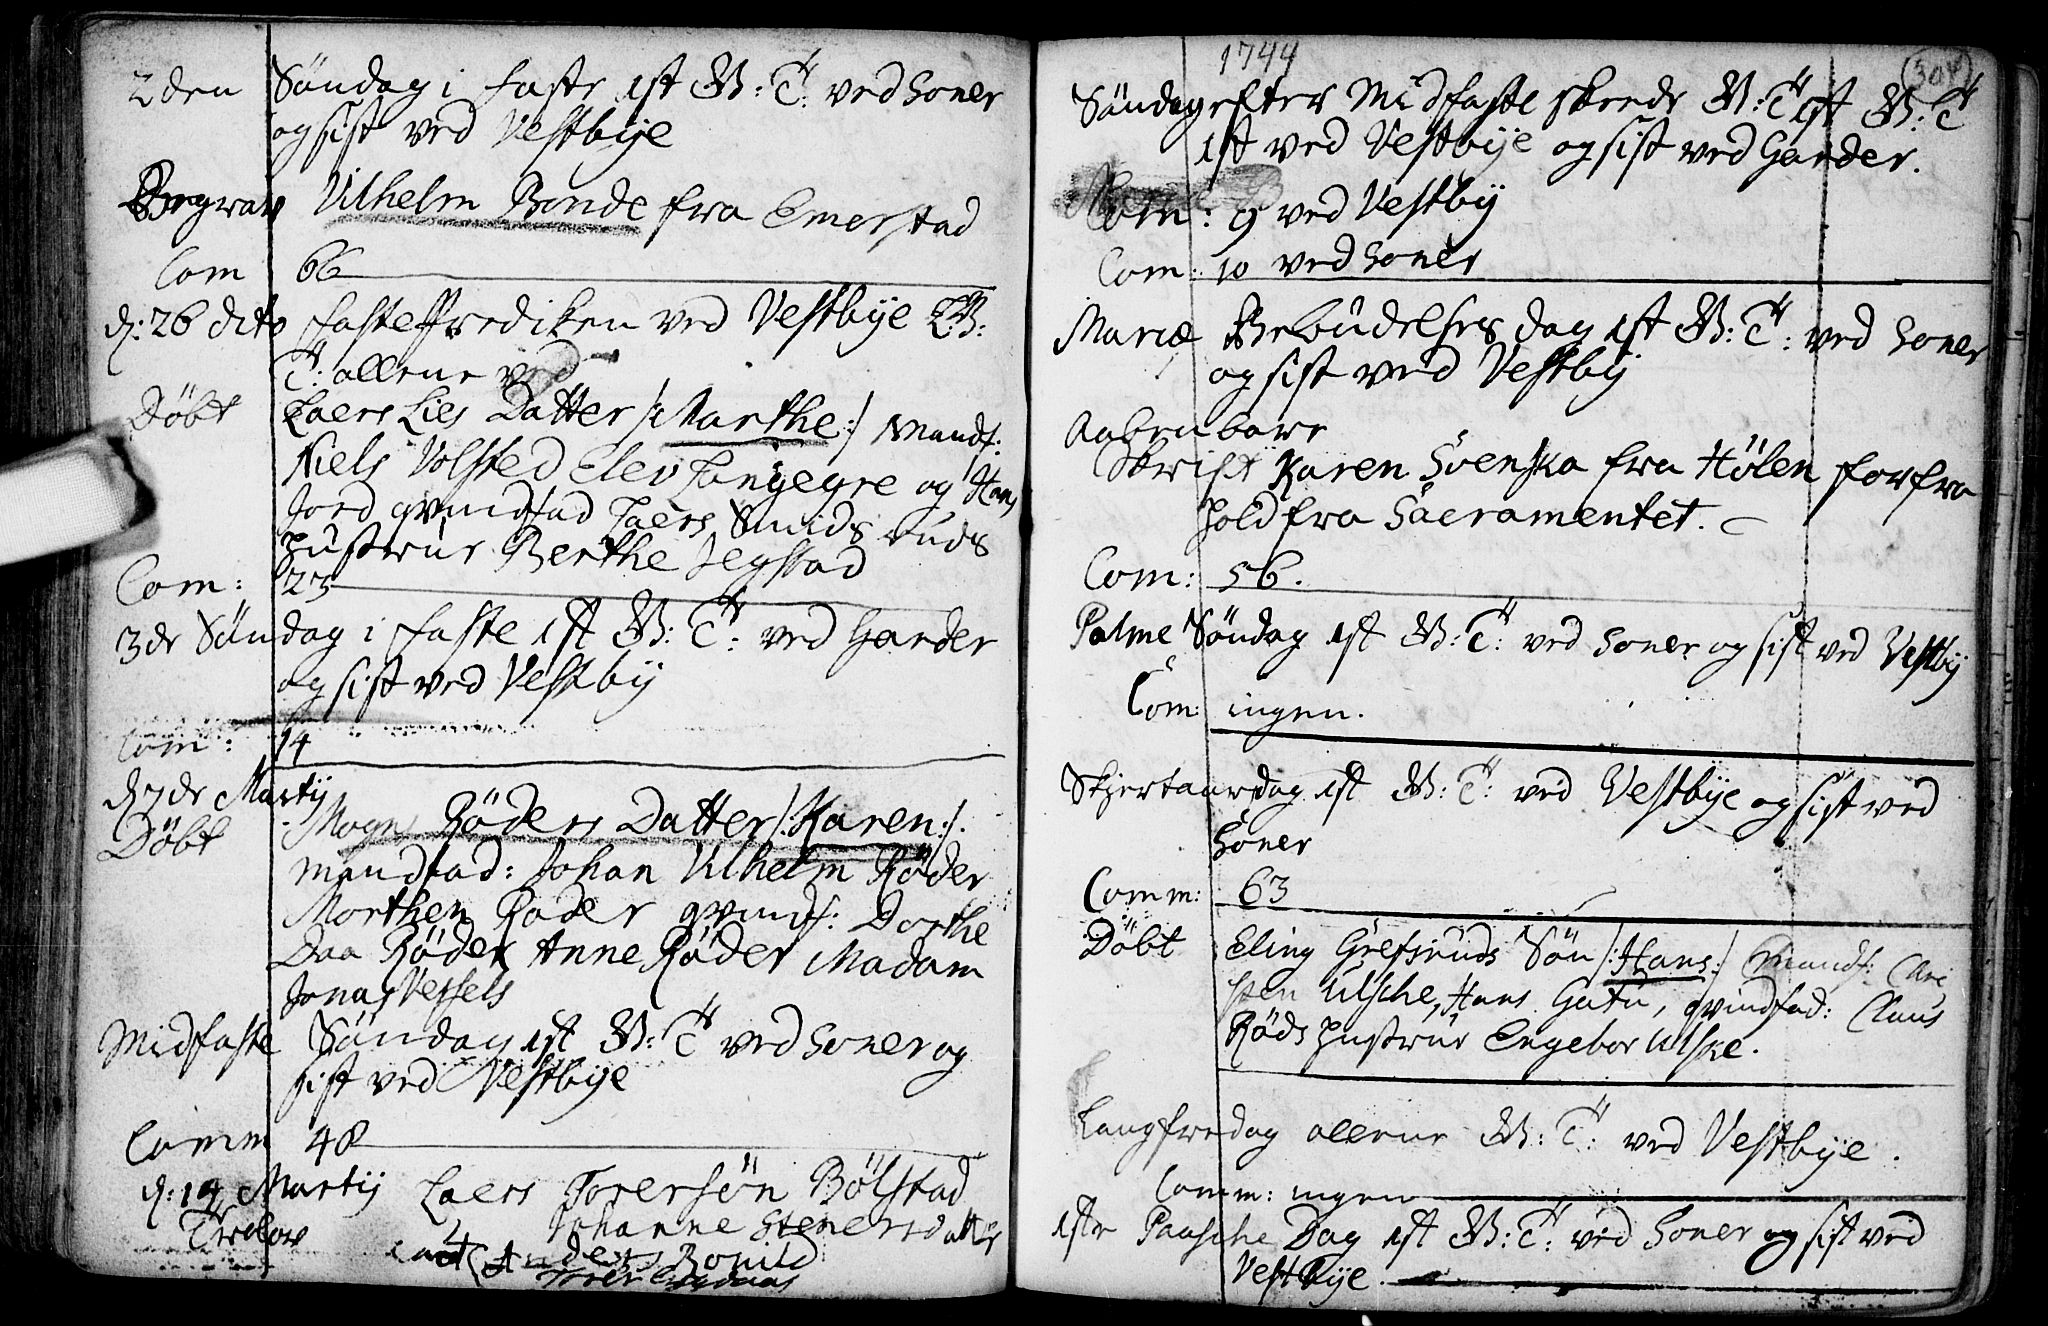 2den Søndag i Faste 1st G: T: ved Soner
og sist ved Vestbije
Begrav Vilhelm Bonde fra Emerstad
Com 66
d: 26 dito Faste Prædiken ved Vestbije
T: allene ved
Døbt Laers Lies Datter /: Marthe :/ Mandf:
Niels Volsted Elev Langegre og Hans
Jord qvindfad Laers Smids ruds
Hustrur Berthe Jegstad
Com: 23
3de Søndag i Faste 1st G: T: ved Garder
og sist ved Vestbij
Com: 14
d 7de Martij
Døbt Mogns Røders Datter /: Karen :/.
mandfad: Johan Vilhelm Røder
Morthen Røder qvindf: Dorthe
Daa Røder Anne Røder Madam
Jonas Vessels
Midfaste Søndag 1st G: T: ved Soner og
sist ved Vestbije
Comm 48
d: 14 Martij Laers Torersøn Bølstad
Trolov Johanne Stenersdatter
Anders Romild
Torer
1744
304
Søndag efter Midfaste skeede G: T: 1st G: T
1st ved Vestbije og sist ved Garder.
Com: 9 ved Vestbij
Com: 10 ved Soner
Mariæ Bebudelses dag 1st G: T: ved Soner
og sist ved Vestbij
Aabenbare
Skrift Karen Svenska fra Hølen for fra
hold fra Sacramentet.
Com: 56.
Palme Søndag 1st G: T: ved Soner og sist ved Vestbij
Com: ingen.
Skjertaarsdag 1st G: T: ved Vestbije og sist ved
Soner
Comm: 63
Døbt Eling Grefsruds Søn /: Hans :/ Mandf: Chri
sten Ulsche, Hans Gatu, qvindfad: Claus
Røds Hustrur Engebor Ulske.
Langfredag allene G: T: ved Vestbije.
Comm: ingen
1ste Paasche Dag 1st G: T: ved Soner og sist ved
Vestbije.